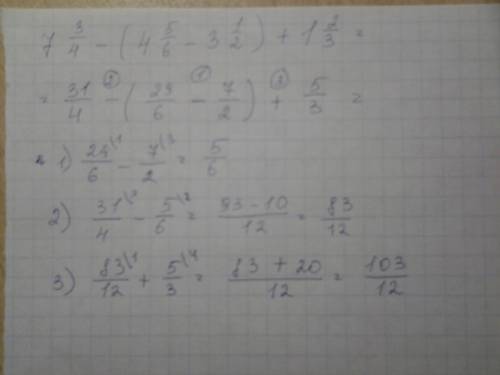 7 3/4 - (4 5/6 - 3 1/2) + 1 2/3 =
= 31/4 -② (29/6 -① 7/2) +③ 5/3 =
1) 29\1/6 - 7\3/2 = 5/6
2) 31\3/4 - 5\2/6 = 93 - 10/12 = 83/12
3) 83\1/12 + 5\4/3 = 83 + 20/12 = 103/12